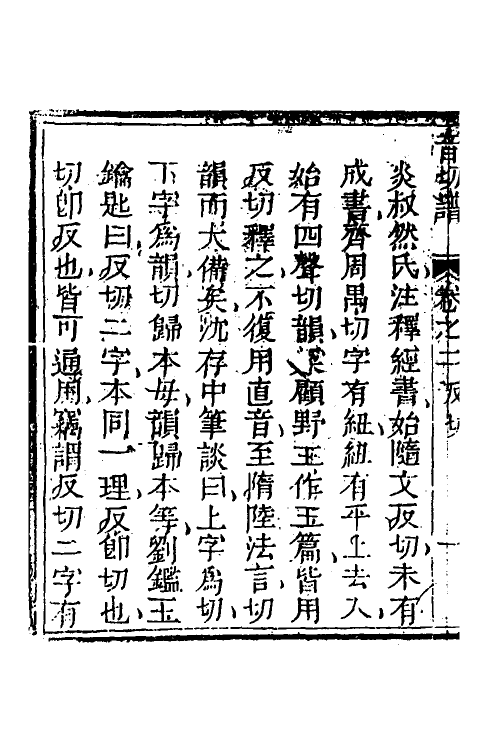 音切譜 卷之二反切 一
炎叔然氏注釋經書始隨文反切未有
成書齊周禺切字有紐紐有平上去入
始有四聲切韻梁顧野王作玉篇皆用
反切釋之不復用直音至惰陸法言切
韻而大備矣沈存中筆談曰上字爲切
下字爲韻切歸本母韻歸本等劉鑑玉
鑰匙曰反切二字本同一理反卽切也
切卽反也皆可通用竊謂反切二字有